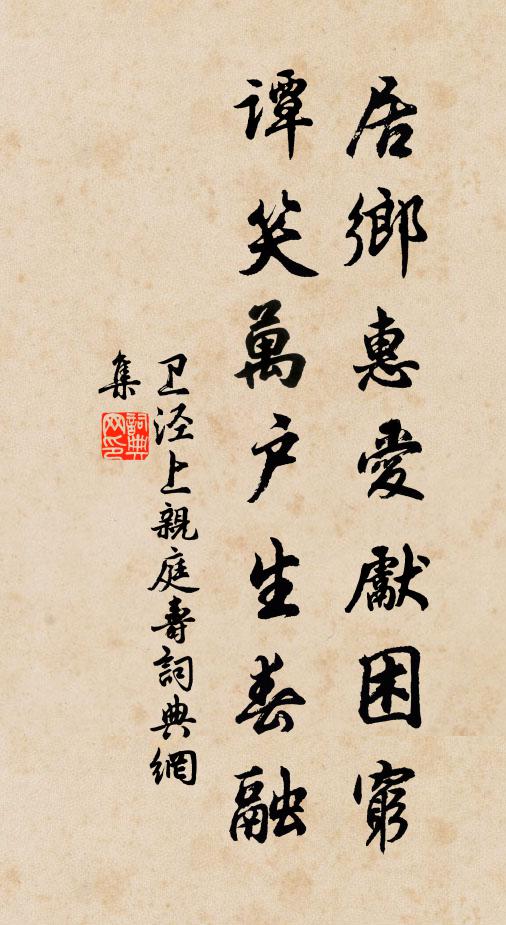 居鄉惠愛獻困窮
谭笑萬户生春融
卫泾上親庭壽詞典網
集
詞典
网印